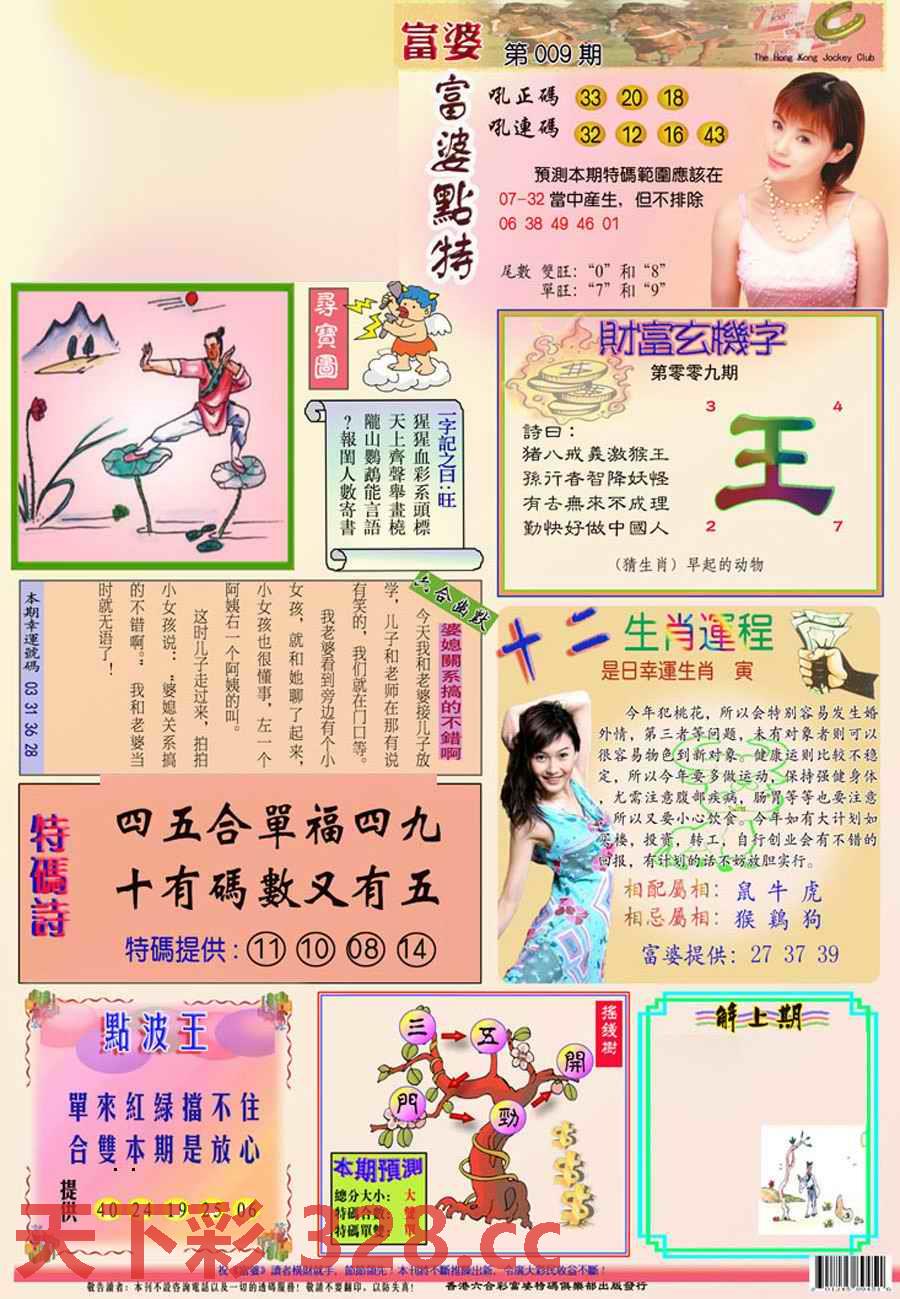 富婆
第 009 期
The Hong Kong Jockey Club
富婆點特
吼正碼 33 20 18
吼連碼 32 12 16 43
預測本期特碼範圍應該在
07-32 當中産生，但不排除
06 38 49 46 01
尾數 雙旺：“0”和“8”
單旺：“7”和“9”
尋寶圖
一字記之曰：旺
猩猩血彩系頭標
天上齊聲舉畫橈
隴山鸚鵡能言語
？報閨人數寄書
財富玄機字
第零零九期
詩曰：
豬八戒義激猴王
孫行者智降妖怪
有去無來不成理
勤快好做中國人
3 4
王
2 7
（猜生肖）早起的动物
六合幽默
婆媳關系搞的不錯啊
今天我和老婆接儿子放
学，儿子和老师在那有说
有笑的，我们就在门口等。
我老婆看到旁边有个小
女孩，就和她聊了起来，
小女孩也很懂事，左一个
阿姨右一个阿姨的叫。
这时儿子走过来，拍拍
小女孩说：“婆媳关系搞
的不错啊。” 我和老婆当
时就无语了！
本期幸運號碼 03 31 36 28
十二生肖運程
是日幸運生肖 寅
今年犯桃花，所以会特别容易发生婚
外情，第三者等问题，未有对象者则可以
很容易物色到新对象。健康运则比较不稳
定，所以今年要多做运动，保持强健身体
，尤需注意腹部疾病，肠胃等等也要注意
，所以又要小心饮食。今年如有大计划如
买楼，投资，转工，自行创业会有不错的
回报，有计划的话不妨放胆实行。
相配屬相：鼠 牛 虎
相忌屬相：猴 鷄 狗
富婆提供：27 37 39
特碼詩
四五合單福四九
十有碼數又有五
特碼提供：11 10 08 14
點波王
單來紅绿擋不住
合雙本期是放心
提供 40 24 19 25 06
搖錢樹
三 五
開
門
勁
本期預測
總分大小：大
特碼合數：雙
特碼單雙：單
解上期
天下彩 328.cc
祝《富婆》讀者橫財就手，節節領先！本刊將不斷推陳出新，令廣大彩民收益不斷！
敬告讀者：本刊不設咨詢電話以及一切的透碼服務！敬請不要翻印，以防失真！
香港六合彩富婆特碼俱樂部出版發行